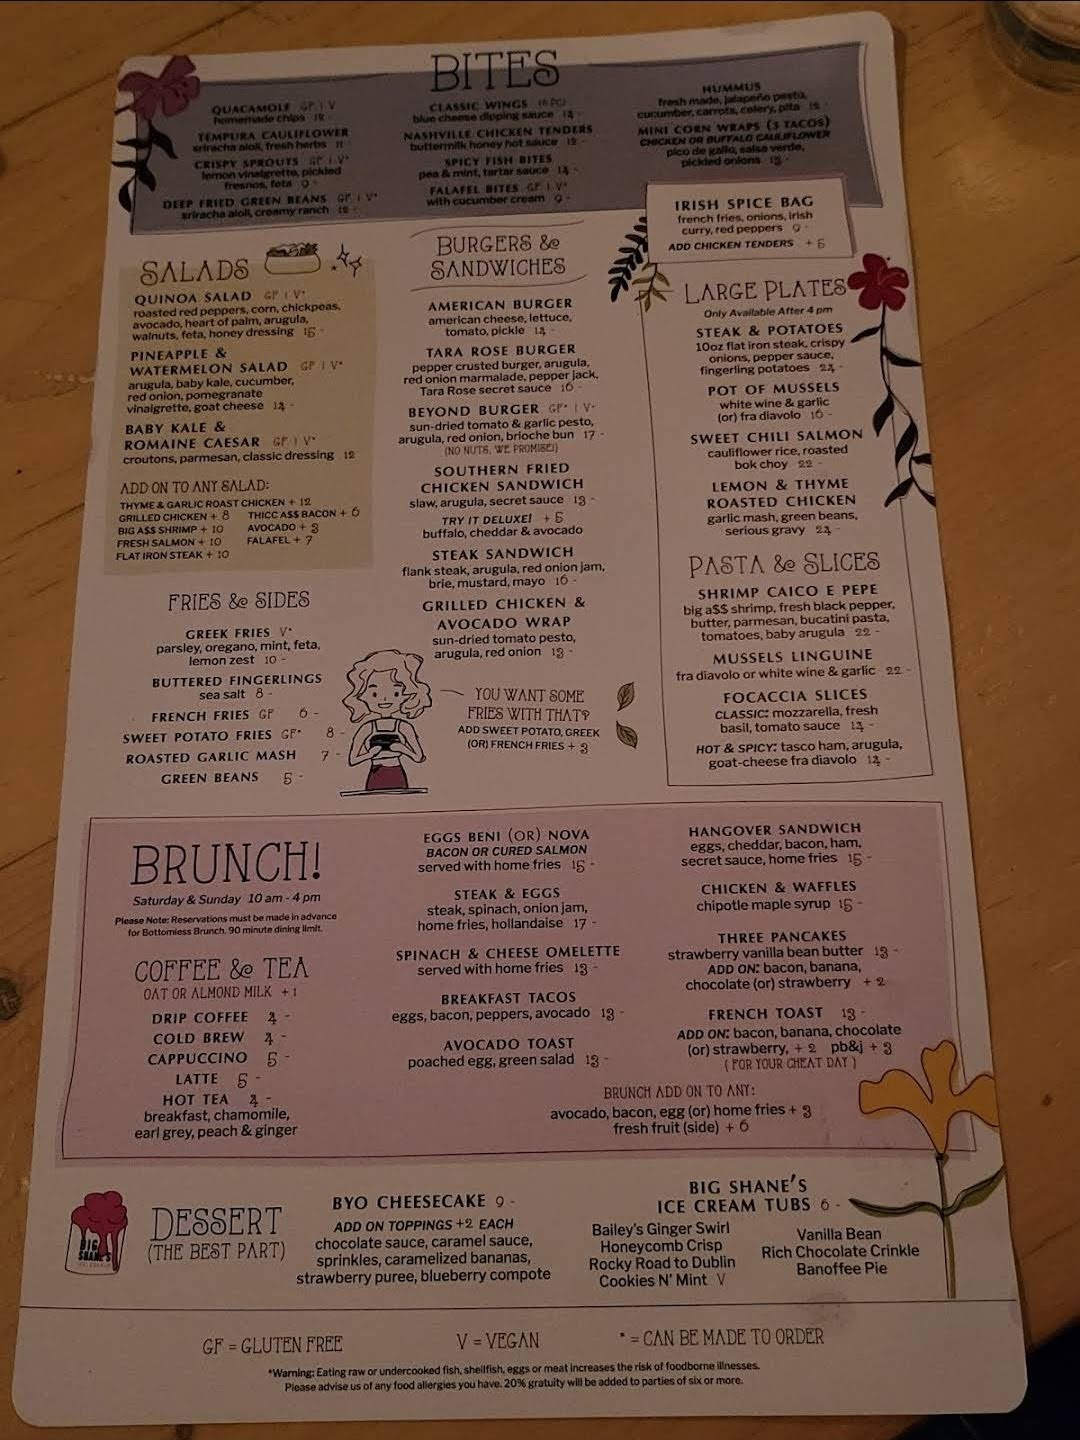 BITES
QUACAMOLE GF | V
homemade chips 12 -
TEMPURA CAULIFLOWER
sriracha aioli, fresh herbs 11 -
CRISPY SPROUTS GF | V*
lemon vinaigrette, pickled
fresnos, feta 9 -
DEEP FRIED GREEN BEANS GF | V*
sriracha aioli, creamy ranch
CLASSIC WINGS (6 PC)
blue cheese dipping sauce 14 -
NASHVILLE CHICKEN TENDERS
buttermilk honey hot sauce 12 -
SPICY FISH BITES
pea & mint, tartar sauce 14 -
FALAFEL BITES GF | V*
with cucumber cream 9 -
HUMMUS
fresh made, jalapeño pesto,
cucumber, carrots, celery, pita
MINI CORN WRAPS (3 TACOS)
CHICKEN OR BUFFALO CAULIFLOWER
pico de gallo, salsa verde,
pickled onions 13 -
IRISH SPICE BAG
french fries, onions, irish
curry, red peppers 9 -
ADD CHICKEN TENDERS + 5
SALADS
QUINOA SALAD GF | V*
roasted red peppers, corn, chickpeas,
avocado, heart of palm, arugula,
walnuts, feta, honey dressing 15 -
PINEAPPLE &
WATERMELON SALAD GF | V*
arugula, baby kale, cucumber,
red onion, pomegranate
vinaigrette, goat cheese 14 -
BABY KALE &
ROMAINE CAESAR GF | V*
croutons, parmesan, classic dressing 12
ADD ON TO ANY SALAD:
THYME & GARLIC ROAST CHICKEN + 12
GRILLED CHICKEN + 8 THICC A$$ BACON + 6
BIG A$$ SHRIMP + 10 AVOCADO + 3
FRESH SALMON + 10 FALAFEL + 7
FLAT IRON STEAK + 10
FRIES & SIDES
GREEK FRIES V*
parsley, oregano, mint, feta,
lemon zest 10 -
BUTTERED FINGERLINGS
sea salt 8 -
FRENCH FRIES GF 6 -
SWEET POTATO FRIES GF* 8 -
ROASTED GARLIC MASH 7 -
GREEN BEANS 5 -
BURGERS &
SANDWICHES
AMERICAN BURGER
american cheese, lettuce,
tomato, pickle 14 -
TARA ROSE BURGER
pepper crusted burger, arugula,
red onion marmalade, pepper jack,
Tara Rose secret sauce 16 -
BEYOND BURGER GF* | V*
sun-dried tomato & garlic pesto,
arugula, red onion, brioche bun 17 -
(NO NUTS, WE PROMISE!)
SOUTHERN FRIED
CHICKEN SANDWICH
slaw, arugula, secret sauce 13 -
TRY IT DELUXE! + 5
buffalo, cheddar & avocado
STEAK SANDWICH
flank steak, arugula, red onion jam,
brie, mustard, mayo 16 -
GRILLED CHICKEN &
AVOCADO WRAP
sun-dried tomato pesto,
arugula, red onion 13 -
YOU WANT SOME
FRIES WITH THAT?
ADD SWEET POTATO, GREEK
(OR) FRENCH FRIES + 3
LARGE PLATES
Only Available After 4 pm
STEAK & POTATOES
10oz flat iron steak, crispy
onions, pepper sauce,
fingerling potatoes 24 -
POT OF MUSSELS
white wine & garlic
(or) fra diavolo 16 -
SWEET CHILI SALMON
cauliflower rice, roasted
bok choy 22 -
LEMON & THYME
ROASTED CHICKEN
garlic mash, green beans,
serious gravy 24 -
PASTA & SLICES
SHRIMP CAICO E PEPE
big a$$ shrimp, fresh black pepper,
butter, parmesan, bucatini pasta,
tomatoes, baby arugula 22 -
MUSSELS LINGUINE
fra diavolo or white wine & garlic 22 -
FOCACCIA SLICES
CLASSIC: mozzarella, fresh
basil, tomato sauce 14 -
HOT & SPICY: tasco ham, arugula,
goat-cheese fra diavolo 14 -
BRUNCH!
Saturday & Sunday 10 am - 4 pm
Please Note: Reservations must be made in advance
for Bottomless Brunch. 90 minute dining limit.
COFFEE & TEA
OAT OR ALMOND MILK +1
DRIP COFFEE 4 -
COLD BREW 4 -
CAPPUCCINO 5 -
LATTE 5 -
HOT TEA 4 -
breakfast, chamomile,
earl grey, peach & ginger
EGGS BENI (OR) NOVA
BACON OR CURED SALMON
served with home fries 15 -
STEAK & EGGS
steak, spinach, onion jam,
home fries, hollandaise 17 -
SPINACH & CHEESE OMELETTE
served with home fries 13 -
BREAKFAST TACOS
eggs, bacon, peppers, avocado 13 -
AVOCADO TOAST
poached egg, green salad 13 -
HANGOVER SANDWICH
eggs, cheddar, bacon, ham,
secret sauce, home fries 15 -
CHICKEN & WAFFLES
chipotle maple syrup 15 -
THREE PANCAKES
strawberry vanilla bean butter 13 -
ADD ON: bacon, banana,
chocolate (or) strawberry + 2
FRENCH TOAST 13 -
ADD ON: bacon, banana, chocolate
(or) strawberry, + 2 pb&j + 3
(FOR YOUR CHEAT DAY)
BRUNCH ADD ON TO ANY:
avocado, bacon, egg (or) home fries + 3
fresh fruit (side) + 6
BIG
SHANE'S
DESSERT
(THE BEST PART)
BYO CHEESECAKE 9 -
ADD ON TOPPINGS +2 EACH
chocolate sauce, caramel sauce,
sprinkles, caramelized bananas,
strawberry puree, blueberry compote
BIG SHANE'S
ICE CREAM TUBS 6 -
Bailey's Ginger Swirl
Honeycomb Crisp
Rocky Road to Dublin
Cookies N' Mint V
Vanilla Bean
Rich Chocolate Crinkle
Banoffee Pie
GF = GLUTEN FREE V = VEGAN * = CAN BE MADE TO ORDER
*Warning: Eating raw or undercooked fish, shellfish, eggs or meat increases the risk of foodborne illnesses.
Please advise us of any food allergies you have. 20% gratuity will be added to parties of six or more.